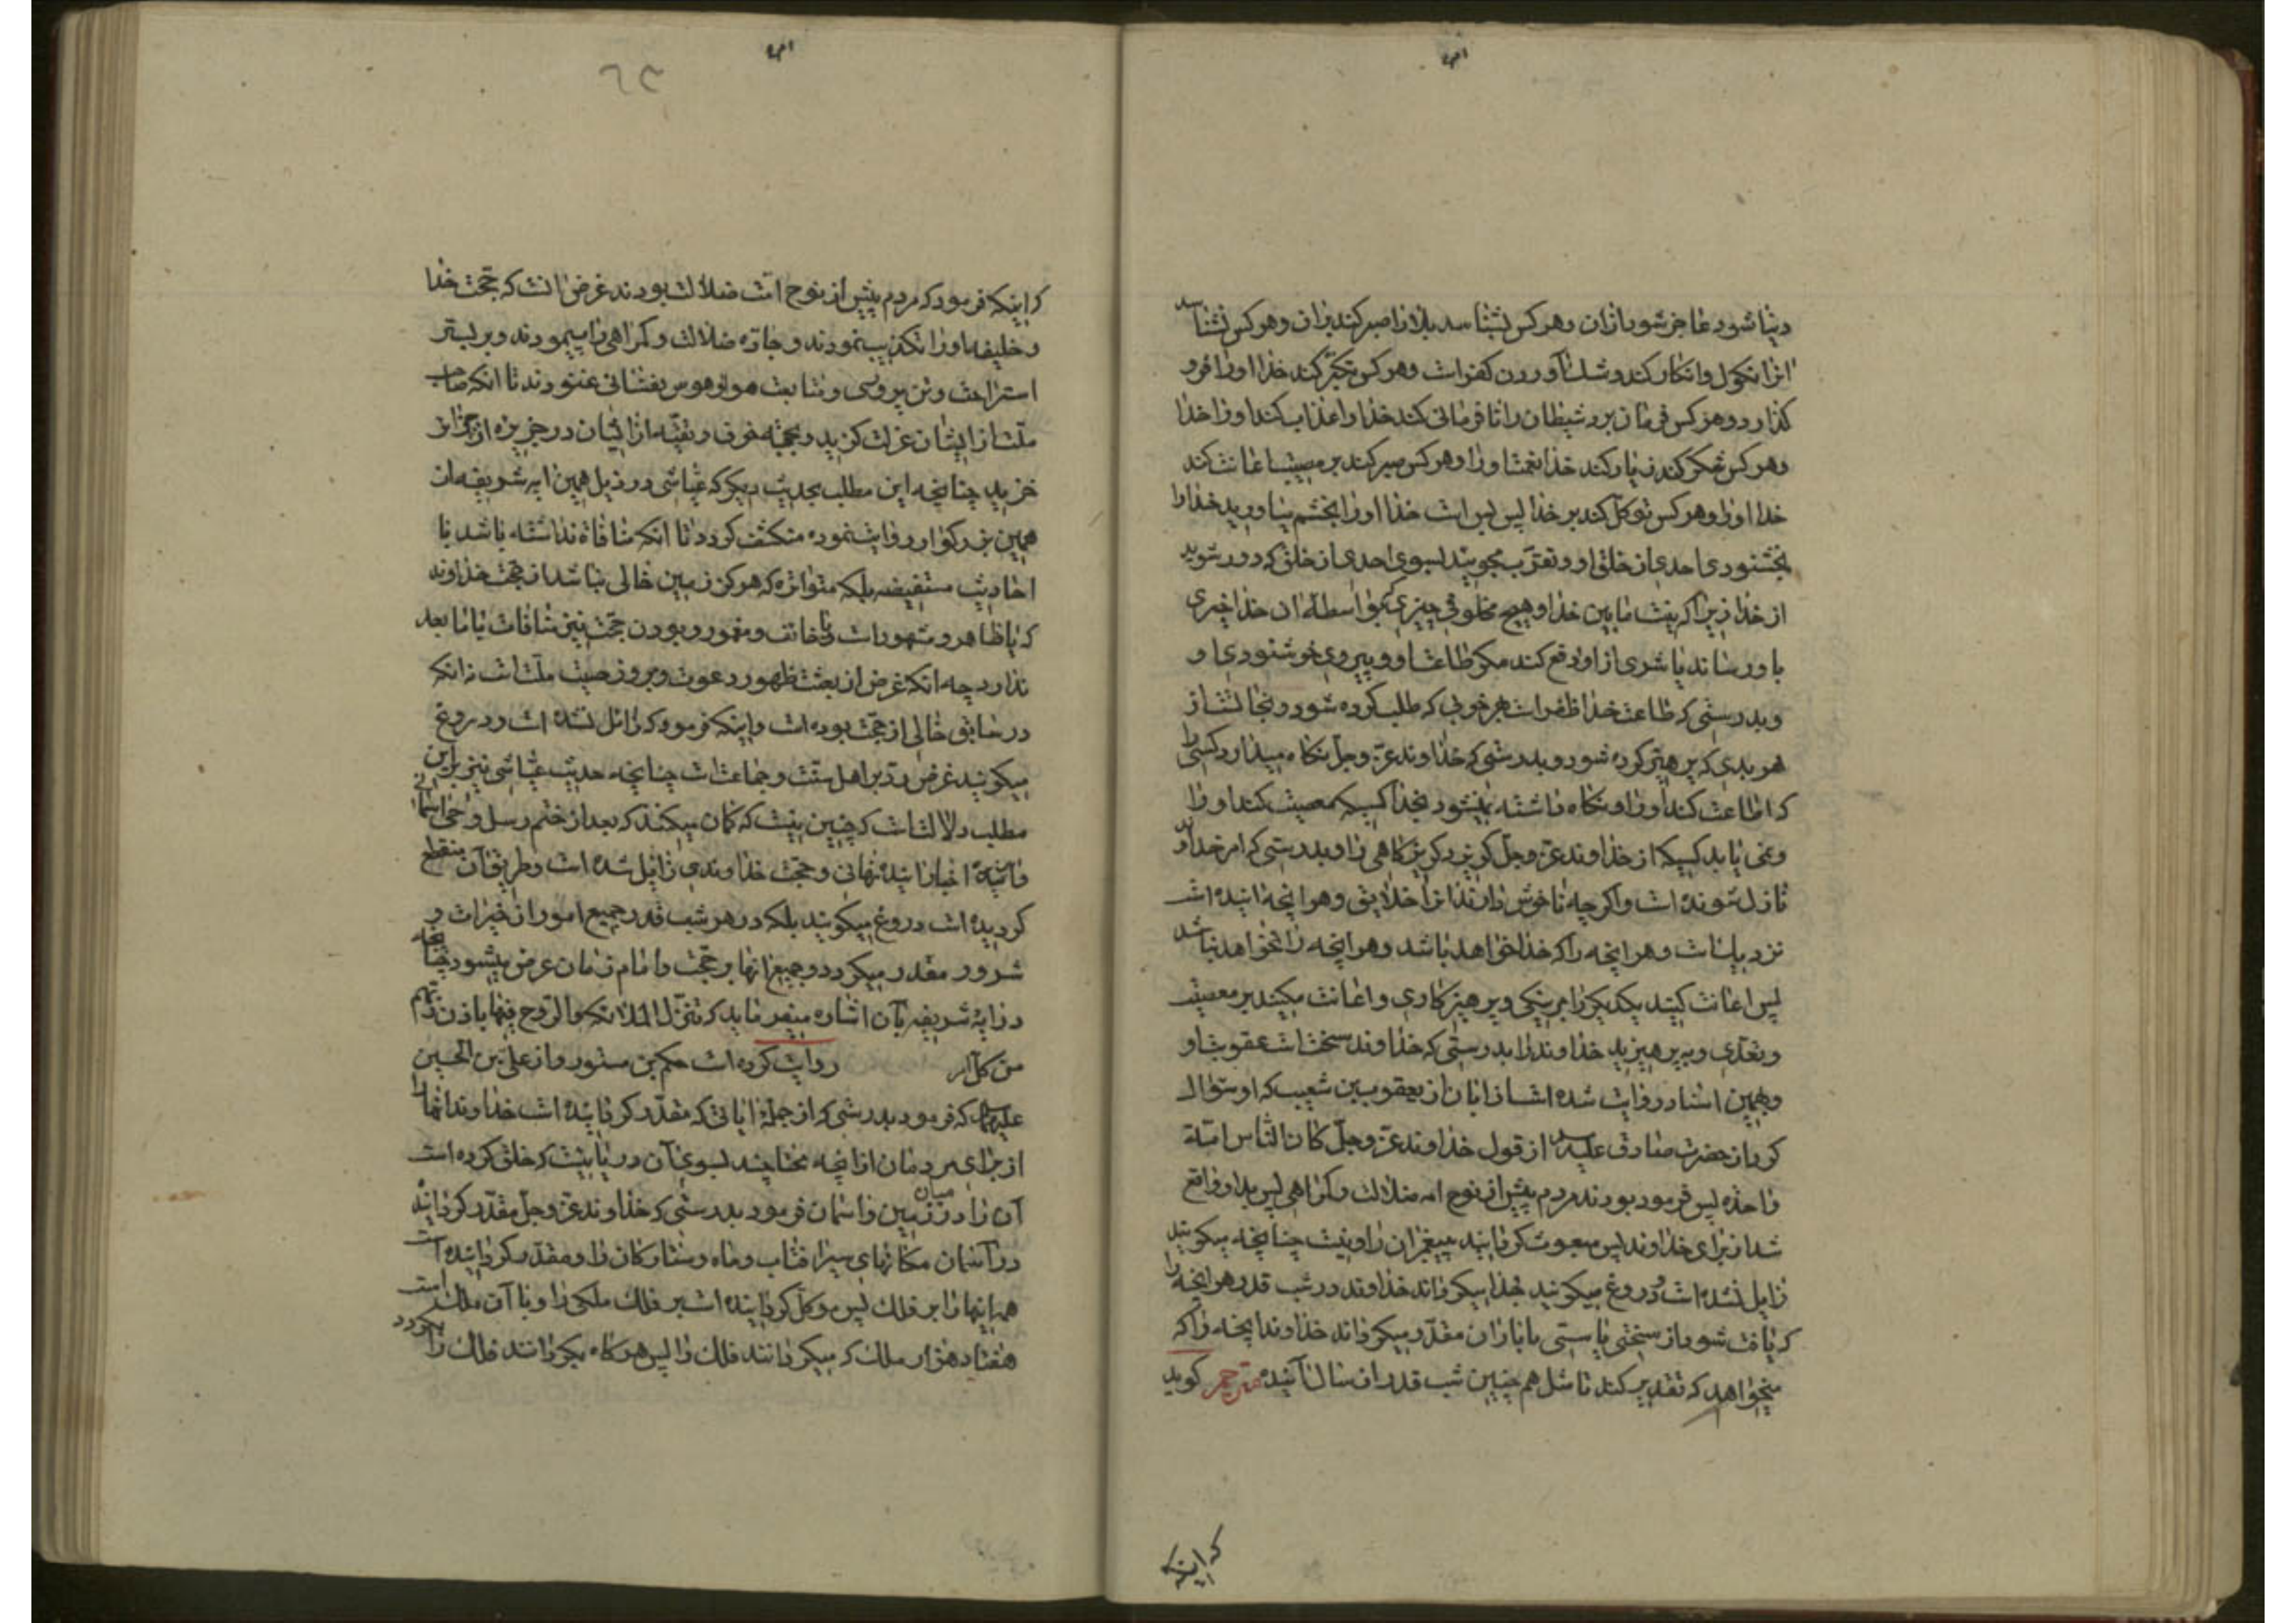 دنیا شود عاجز شود از ان و هر کس بشناسد بلا را صبر کند بران و هر کس نشناسد
انرا نکول و انکار کند و شک آوردن کفر است و هر کس تکبّر کند خدا او را فرو
کذارد و هر کس فرمان برد شیطان را نافرمانی کند خدا را و عذاب کند او را خدا
و هر کس شکر کند زیاد کند خدا نعمت او را و هر کس صبر کند بر مصیبت اعانت کند
خدا او را و هر کس توکل کند بر خدا پس بس است خدا او را بخشم میاورید خدا را
بخشنودی احدی از خلق او و تقرّب مجویید بسوی احدی از خلق که دور شوید
از خدا زیرا که نیست ما بین خدا و هیچ مخلوقی چیزی که بواسطه ان خدا خیری
باو رساند یا شری از او دفع کند مکر طاعت او و پیروی خوشنودی او
و بدرستی که طاعت خدا ظفر است بهر خوبی که طلب کرده شود و نجاتست از
هر بدی که پرهیز کرده شود و بدرستی که خداوند عزّ و جلّ نکاه میدارد کسی را
که اطاعت کند او را و نکاه داشته نمیشود بخدا کسیکه معصیت کند او را
و نمی یابد کسیکه از خداوند عزّ و جلّ کریزد کریزکاهی را و بدرستی که امر خداوند
نازل شونده است و اکر چه ناخوش دارند انرا خلایق و هر انچه اینده است
نزدیک است و هر انچه را که خدا خواهد باشد و هر انچه را نخواهد نباشد
پس اعانت کنید یکدیکر را بر نیکی و پرهیزکاری و اعانت مکنید بر معصیت
و تعدّی و بپرهیزید خداوند را بدرستی که خداوند سخت است عقوبت او
و بهمین اسناد روایت شده است از ابان از یعقوب بن شعیب که او سئوال
کرد از حضرت صادق علیه السلام از قول خداوند عزّ و جلّ کان الناس امّة
واحدة پس فرمود بودند مردم پیش از نوح امه ضلالت و کمراهی پس بدا واقع
شد از برای خداوند پس مبعوث کردانید پیغمبران را و نیست چنانچه میکویند
زایل نشده است و دروغ میکویند بخدا میکرداند خداوند در شب قدر هر انچه را
که یافت شود از سختی یا سستی یا باران مقدّر میکرداند خداوند انچه را که
میخواهد که تقدیر کند تا مثل هم چنین شب قدر از سال آینده مترجم کوید
که اینکه
۶۳
که اینکه فرمود که مردم پیش از نوح امّت ضلالت بودند غرض انست که حجّت خدا
و خلیفه او را تکذیب نمودند و جادّه ضلالت و کمراهی را میپیمودند و بر بستر
استراحت و تن پروری و متابعت هوا و هوس نفسانی غنودند تا انکه صاحب
ملّت از ایشان عزلت کزید و بجهة خوف و تقیّه از ایشان در جزیره از جزائر
خزید چنانچه این مطلب بحدیث دیکر که عیّاشی در ذیل همین ایه شریفه از
همین بزرکوار روایت نموده منکشف کردد تا انکه منافاة نداشته باشد با
احادیث مستفیضه بلکه متواتره که هرکز زمین خالی نباشد از حجّت خداوند
که یا ظاهر و مشهور است و یا خائف و مقهور و بودن حجّت نیز منافات با ما بعد
ندارد چه انکه غرض از بعثت ظهور دعوت و بروز صیت ملّت است نه انکه
در سابق خالی از حجّت بوده است و اینکه فرمود که زائل نشده است و دروغ
میکویند غرض ردّ بر اهل سنّت و جماعت است چنانچه حدیث عیّاشی نیز بر این
مطلب دلالت است که چنین نیست که کمان میکنند که بعد از ختم رسل وحی اسمانی
و اتیه اخبار اینده نهانی و حجّت خداوندی زایل شده است و طریق آن منقطع
کردیده است دروغ میکویند بلکه در هر شب قدر جمیع امور از خیرات و
شرور مقدر میکردد و جمیع انها بر حجّت و امام زمان عرض میشود چنانچه
در ایهٔ شریفه بآن اشاره میفرماید که تنزّل الملائکة و الرّوح فیها باذن ربّهم
من کل امر روایت کرده است حکم بن مستورد از علیّ بن الحسین
علیهما السلام که فرمود بدرستی که از جملهٔ ایاتی که مقدّر کردانیده است خداوند انها را
از برای مردمان از انچه محتاجند بسوی آن دریائیست که خلق کرده است
آن را در میان زمین و اسمان فرمود بدرستی که خداوند عزّ و جلّ مقدّر کردانیده
در آسمان مکانهای سیر افتاب و ماه و ستارکان را و مقدّر کردانیده است
همه اینها را بر فلک پس موکّل کردانیده است بر فلک ملکی را و با آن ملک است
هفتاد هزار ملک که میکردانند فلک را پس هرکاه بکردانند فلک را بکردد